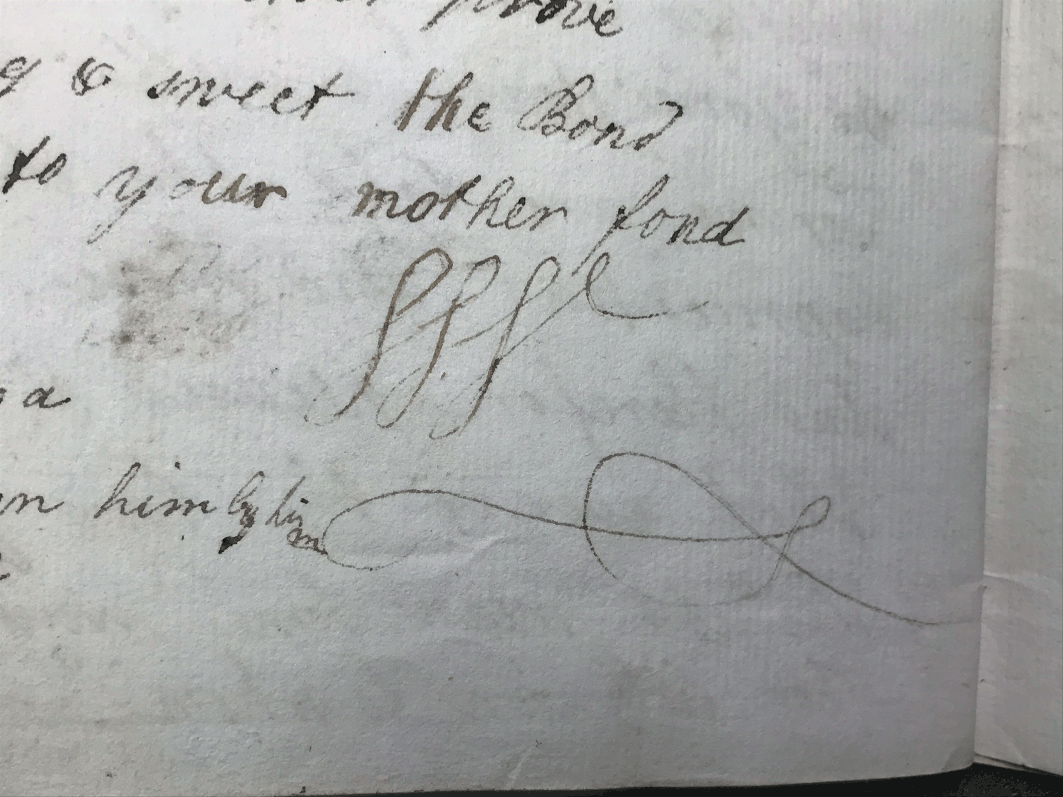 prove
& sweet the Bond
to your mother fond
a
him by him